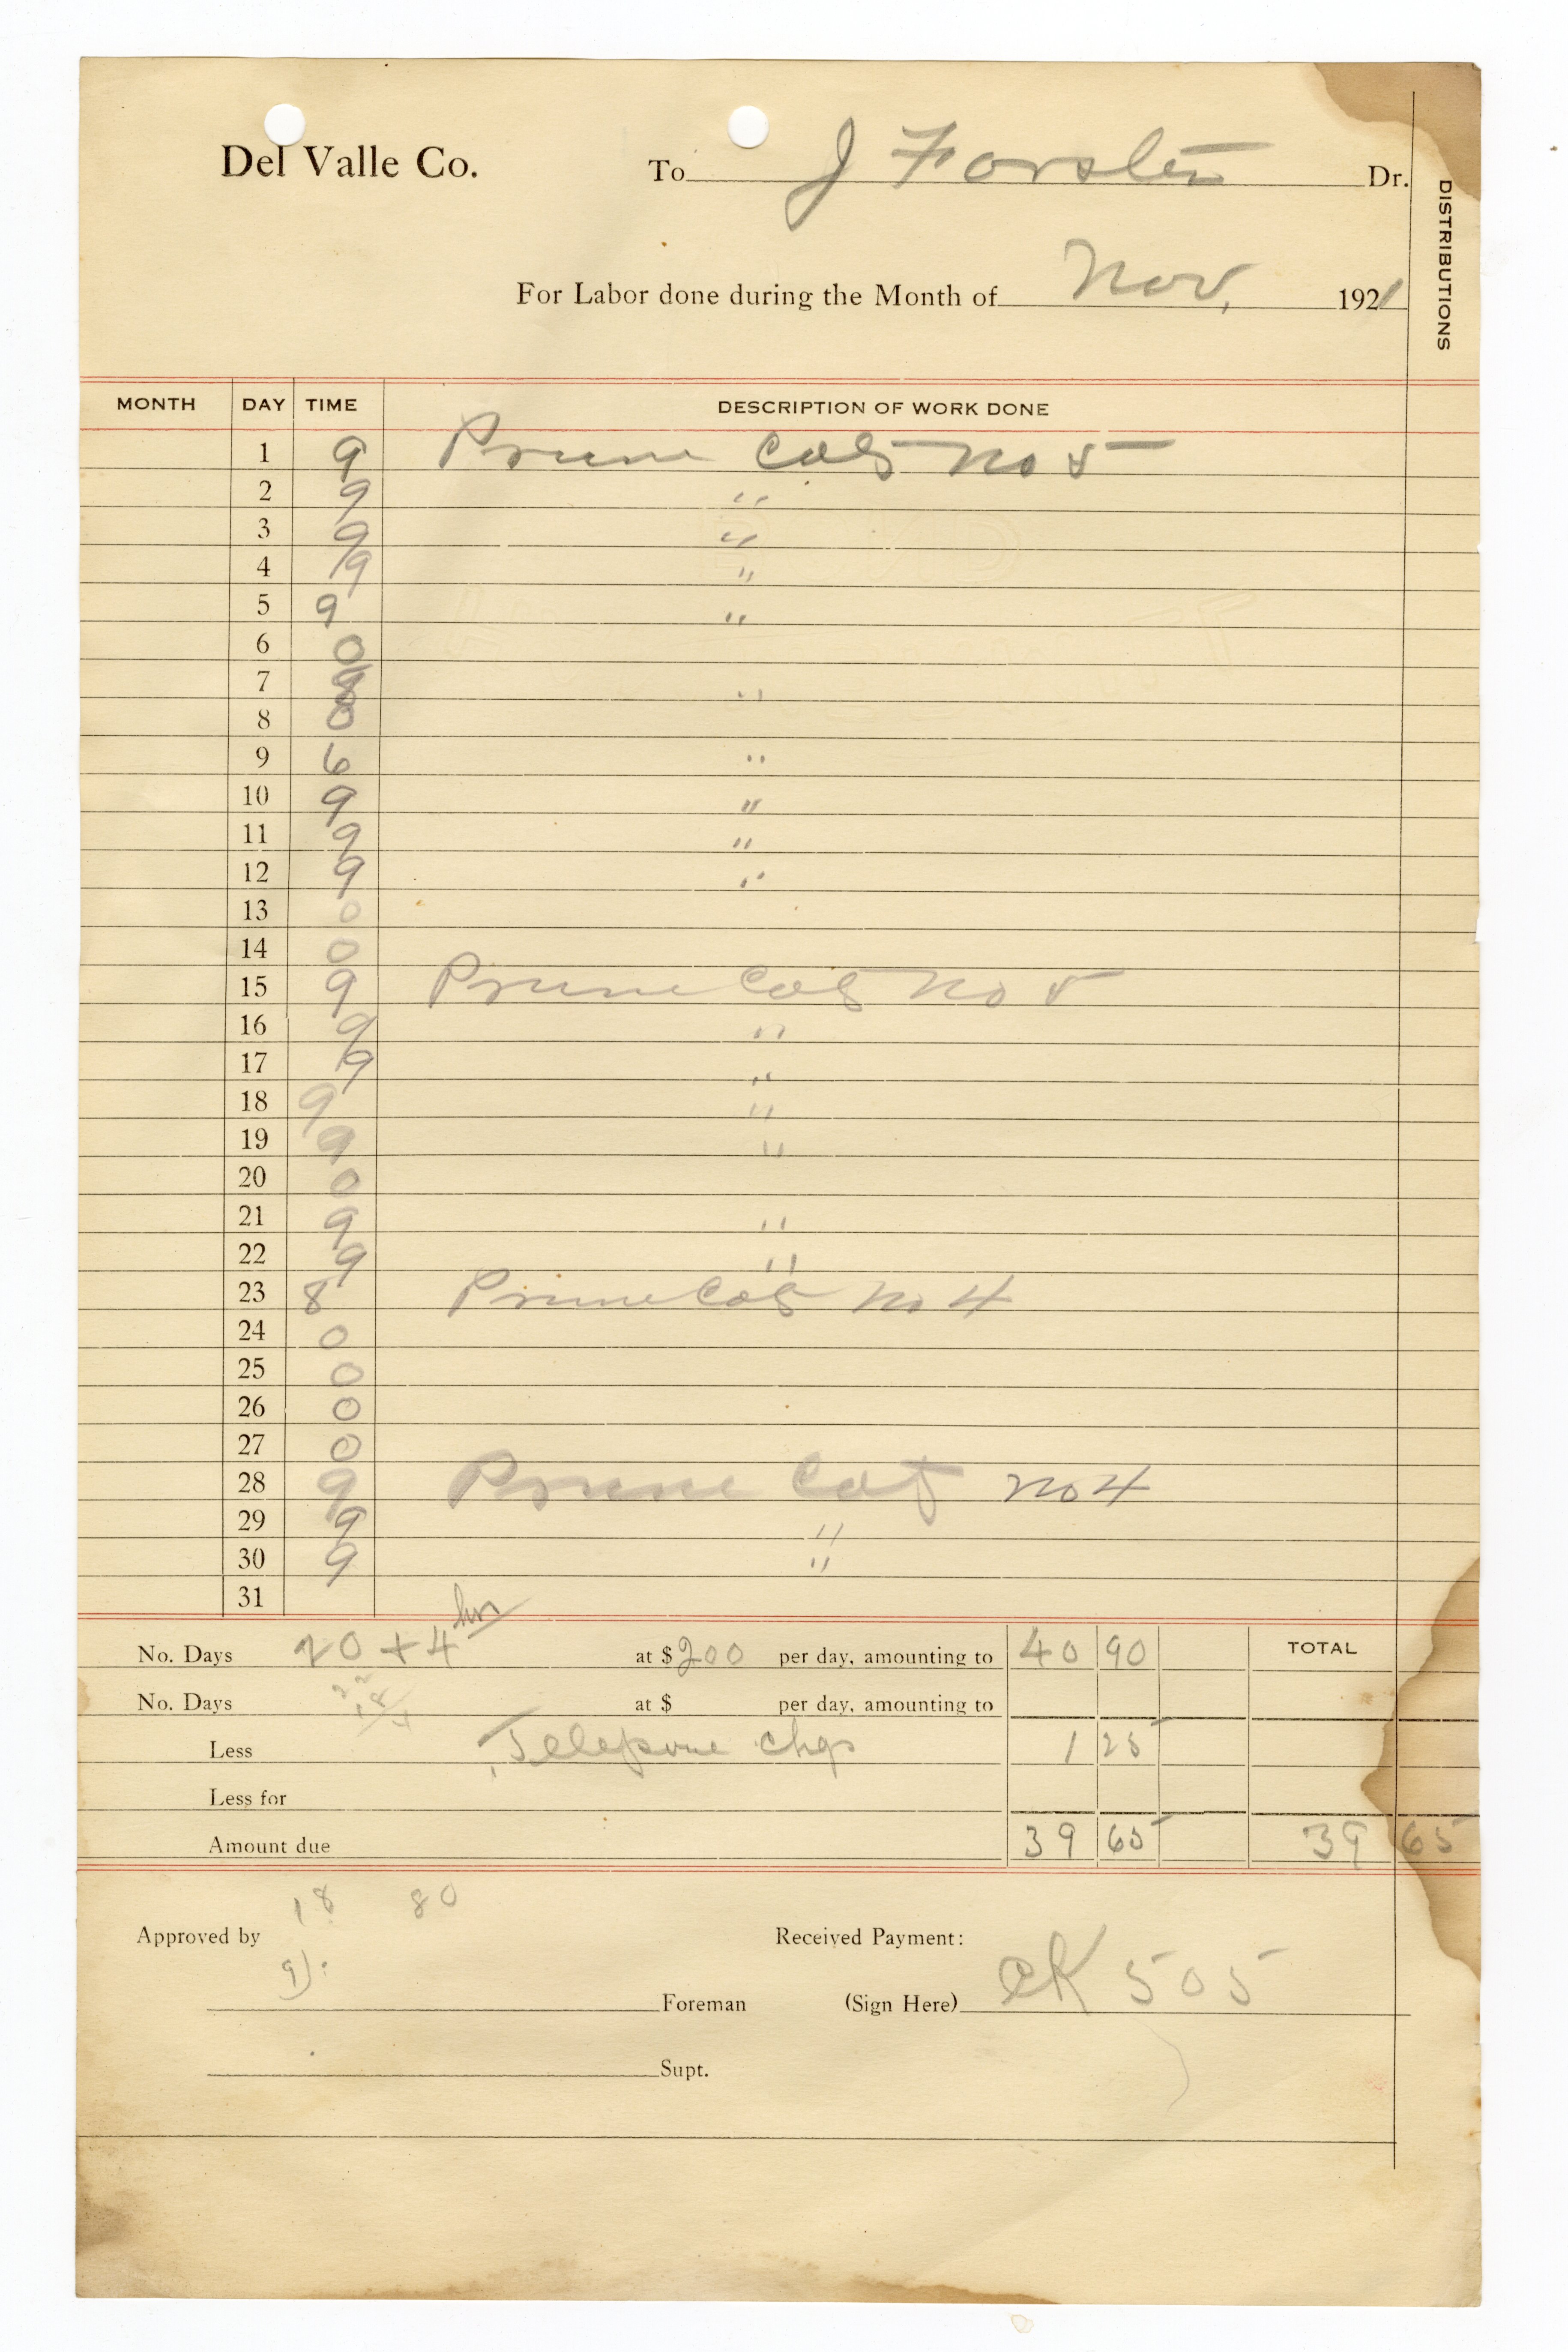 Del Valle Co. To J Forster Dr.
DISTRIBUTIONS
For Labor done during the Month of Nov, 1921
MONTH DAY TIME DESCRIPTION OF WORK DONE
1 9 Prune Cots No 5
2 9 "
3 9 "
4 9 "
5 9 "
6 0
7 9 "
8 0
9 6 "
10 9 "
11 9 "
12 9 "
13 0
14 0
15 9 Prune Cots No 5
16 9 "
17 9 "
18 9 "
19 9 "
20 0
21 9 "
22 9 "
23 8 Prune Cots No 4
24 0
25 0
26 0
27 0
28 9 Prune Cot No 4
29 9 "
30 9 "
31
No. Days 20 + 4 hrs at $ 200 per day, amounting to 40 90 TOTAL
No. Days at $ per day, amounting to
Less Telepone chgs 1 25
Less for
Amount due 39 65 39 65
18 80
Approved by Received Payment:
9)
Foreman (Sign Here) CK 505
Supt.